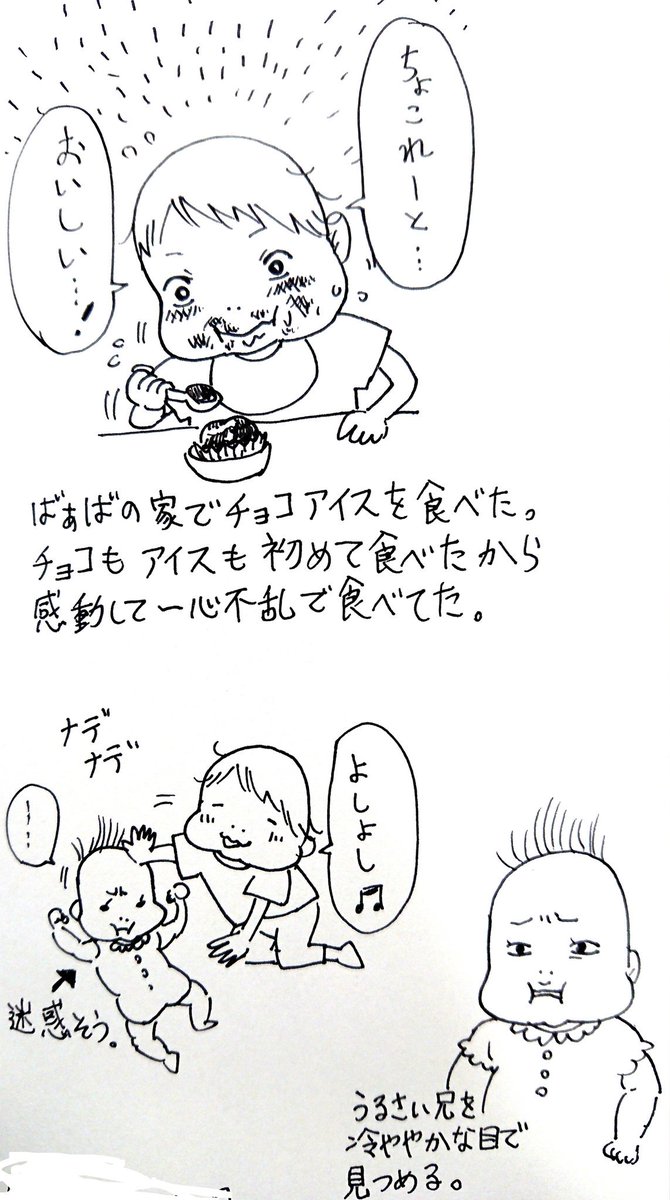 ちょこれーと…
おいしい…!
ばぁばの家でチョコアイスを食べた。
チョコも アイスも 初めて食べたから
感動して一心不乱で食べてた。
ナデ
ナデ
よしよし♫
……
迷惑そう。
うるさい兄を
冷ややかな目で
見つめる。